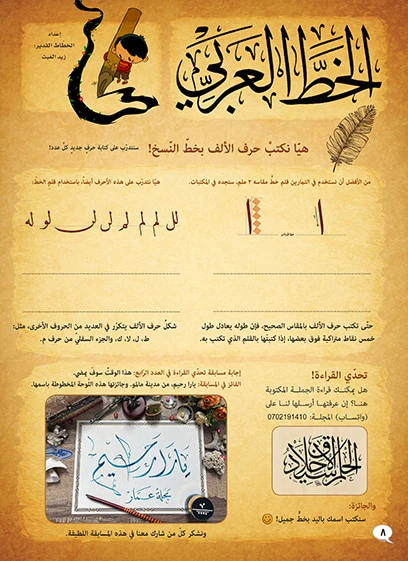 إعداد
الخطاط القدير:
زيد الغيث
الخط العربي
هيّا نكتبْ حرف الألف بخطّ النّسخ!
سنتدرّب على كتابة حرفٍ جديدٍ كلَّ عدد!
من الأفضل أن نستخدم في التمارين قلم خطٍّ مقاسه ٢ ملم، ستجده في المكتبات.
هيّا نتدرّب على هذه الأحرف أيضاً، باستخدام قلم الخطّ:
حتّى تكتب حرف الألف بالمقاس الصحيح، فإن طوله يعادل طول
خمس نقاط متراكبة فوق بعضها، إذا كتبتَها بالقلم الذي تكتب به.
شكلُ حرف الألف يتكرّر في العديد من الحروف الأخرى، مثل:
ط، ل، لا، ك، والجزء السفليّ من حرف م.
تحدّي القراءة!
هل يمكنك قراءة الجملة المكتوبة
هنا؟ إن عرفتَها أرسلها لنا على
(واتساب) المجلة: 0702191410
الحلم سيد الأخلاق
والجائزة:
سنكتب اسمك باليد بخطٍّ جميل!
إجابة مسابقة تحدّي القراءة في العدد الرّابع: هذا الوقتُ سوفَ يمضي.
الفائز في المسابقة: يارا رحيم، من مدينة مالمو. وجائزتها هذه اللّوحة المخطوطة باسمها.
يارا رحيم
مجلة عمّار
ونشكر كلّ من شارك معنا في هذه المسابقة اللطيفة.
٨